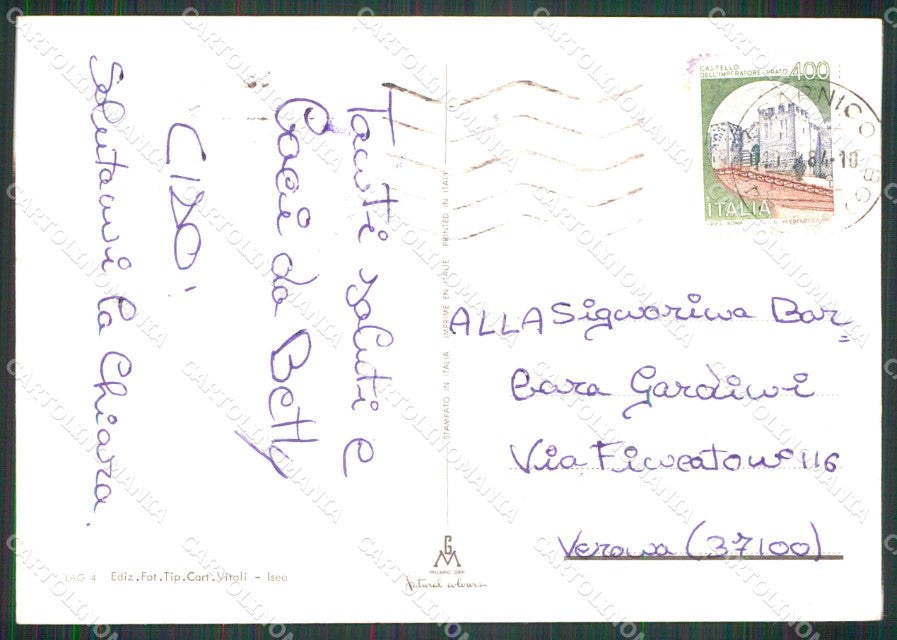 Tanti saluti e
Baci da Betty
CIAO!
Salutami la Chiara.
LAG 4 Ediz.Fot.Tip.Cart.Vitali - Iseo
STAMPATO IN ITALIA IMPRIME EN ITALIE PRINTED IN ITALY
GM
MILANO DEP.
Natural colours
CASTELLO
DELL'IMPERATORE - PRATO 400
ITALIA
ALLA Signorina Bar=
bara Gardini
Via Fincato n° 116
Verona (37100)
CARTOLINOMANIA